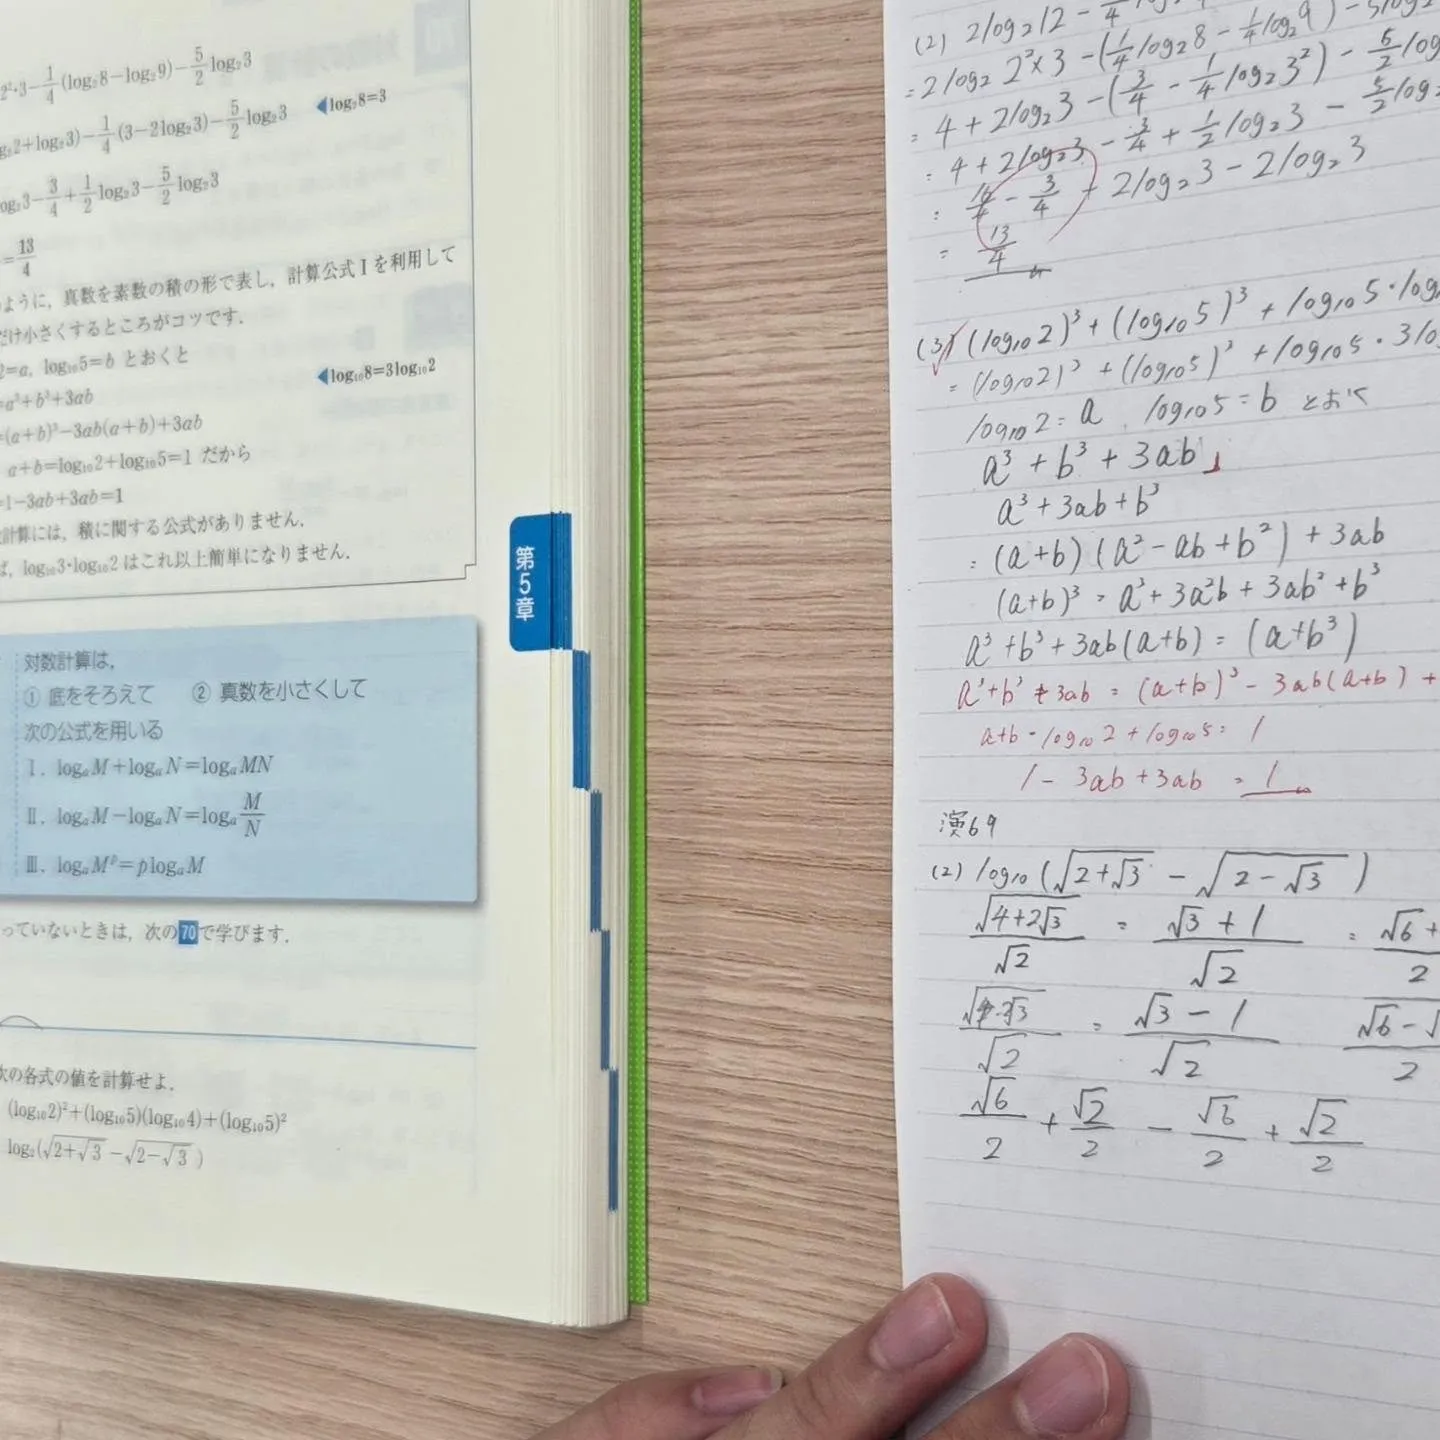 2²·3−1/4(log₂8−log₂9)−5/2log₂3
g₂2+log₂3)−1/4(3−2log₂3)−5/2log₂3 ◀log₂8=3
og₂3−3/4+1/2log₂3−5/2log₂3
=13/4
ように，真数を素数の積の形で表し，計算公式Ⅰを利用して
だけ小さくするところがコツです．
2=a, log₁₀5=b とおくと
=a³+b³+3ab ◀log₁₀8=3log₁₀2
=(a+b)³−3ab(a+b)+3ab
a+b=log₁₀2+log₁₀5=1 だから
=1−3ab+3ab=1
計算には，積に関する公式がありません．
ば，log₁₀3·log₁₀2はこれ以上簡単になりません．
第5章
対数計算は，
① 底をそろえて ② 真数を小さくして
次の公式を用いる
Ⅰ．logₐM+logₐN=logₐMN
Ⅱ．logₐM−logₐN=logₐM/N
Ⅲ．logₐMᵖ=plogₐM
っていないときは，次の70で学びます．
次の各式の値を計算せよ．
(log₁₀2)²+(log₁₀5)(log₁₀4)+(log₁₀5)²
log₂(√(2+√3)−√(2−√3))
(2) 2log₂12 −
= 2log₂ 2²×3 − (1/4log₂8 − 1/4log₂9) −
= 4 + 2log₂3 − (3/4 − 1/4log₂3²) − 5/2log
= 4 + 2log₂3 − 3/4 + 1/2log₂3 − 5/2log₂
= 16/4 − 3/4 + 2log₂3 − 2log₂3
= 13/4
(3) (log₁₀2)³ + (log₁₀5)³ + log₁₀5・log
= (log₁₀2)³ + (log₁₀5)³ + log₁₀5・3lo
log₁₀2 = a, log₁₀5 = b とおく
a³ + b³ + 3ab
a³ + 3ab + b³
= (a+b)(a² − ab + b²) + 3ab
(a+b)³ = a³ + 3a²b + 3ab² + b³
a³ + b³ + 3ab(a+b) = (a+b³)
a³+b³+3ab = (a+b)³ − 3ab(a+b) +
a+b = log₁₀2 + log₁₀5 = 1
1 − 3ab + 3ab = 1
演69
(2) log₁₀(√(2+√3) − √(2−√3))
√(4+2√3)/√2 = (√3+1)/√2 = √6+ /2
√3 /√2 = (√3−1)/√2 √6−√ /2
√6/2 + √2/2 − √6/2 + √2/2